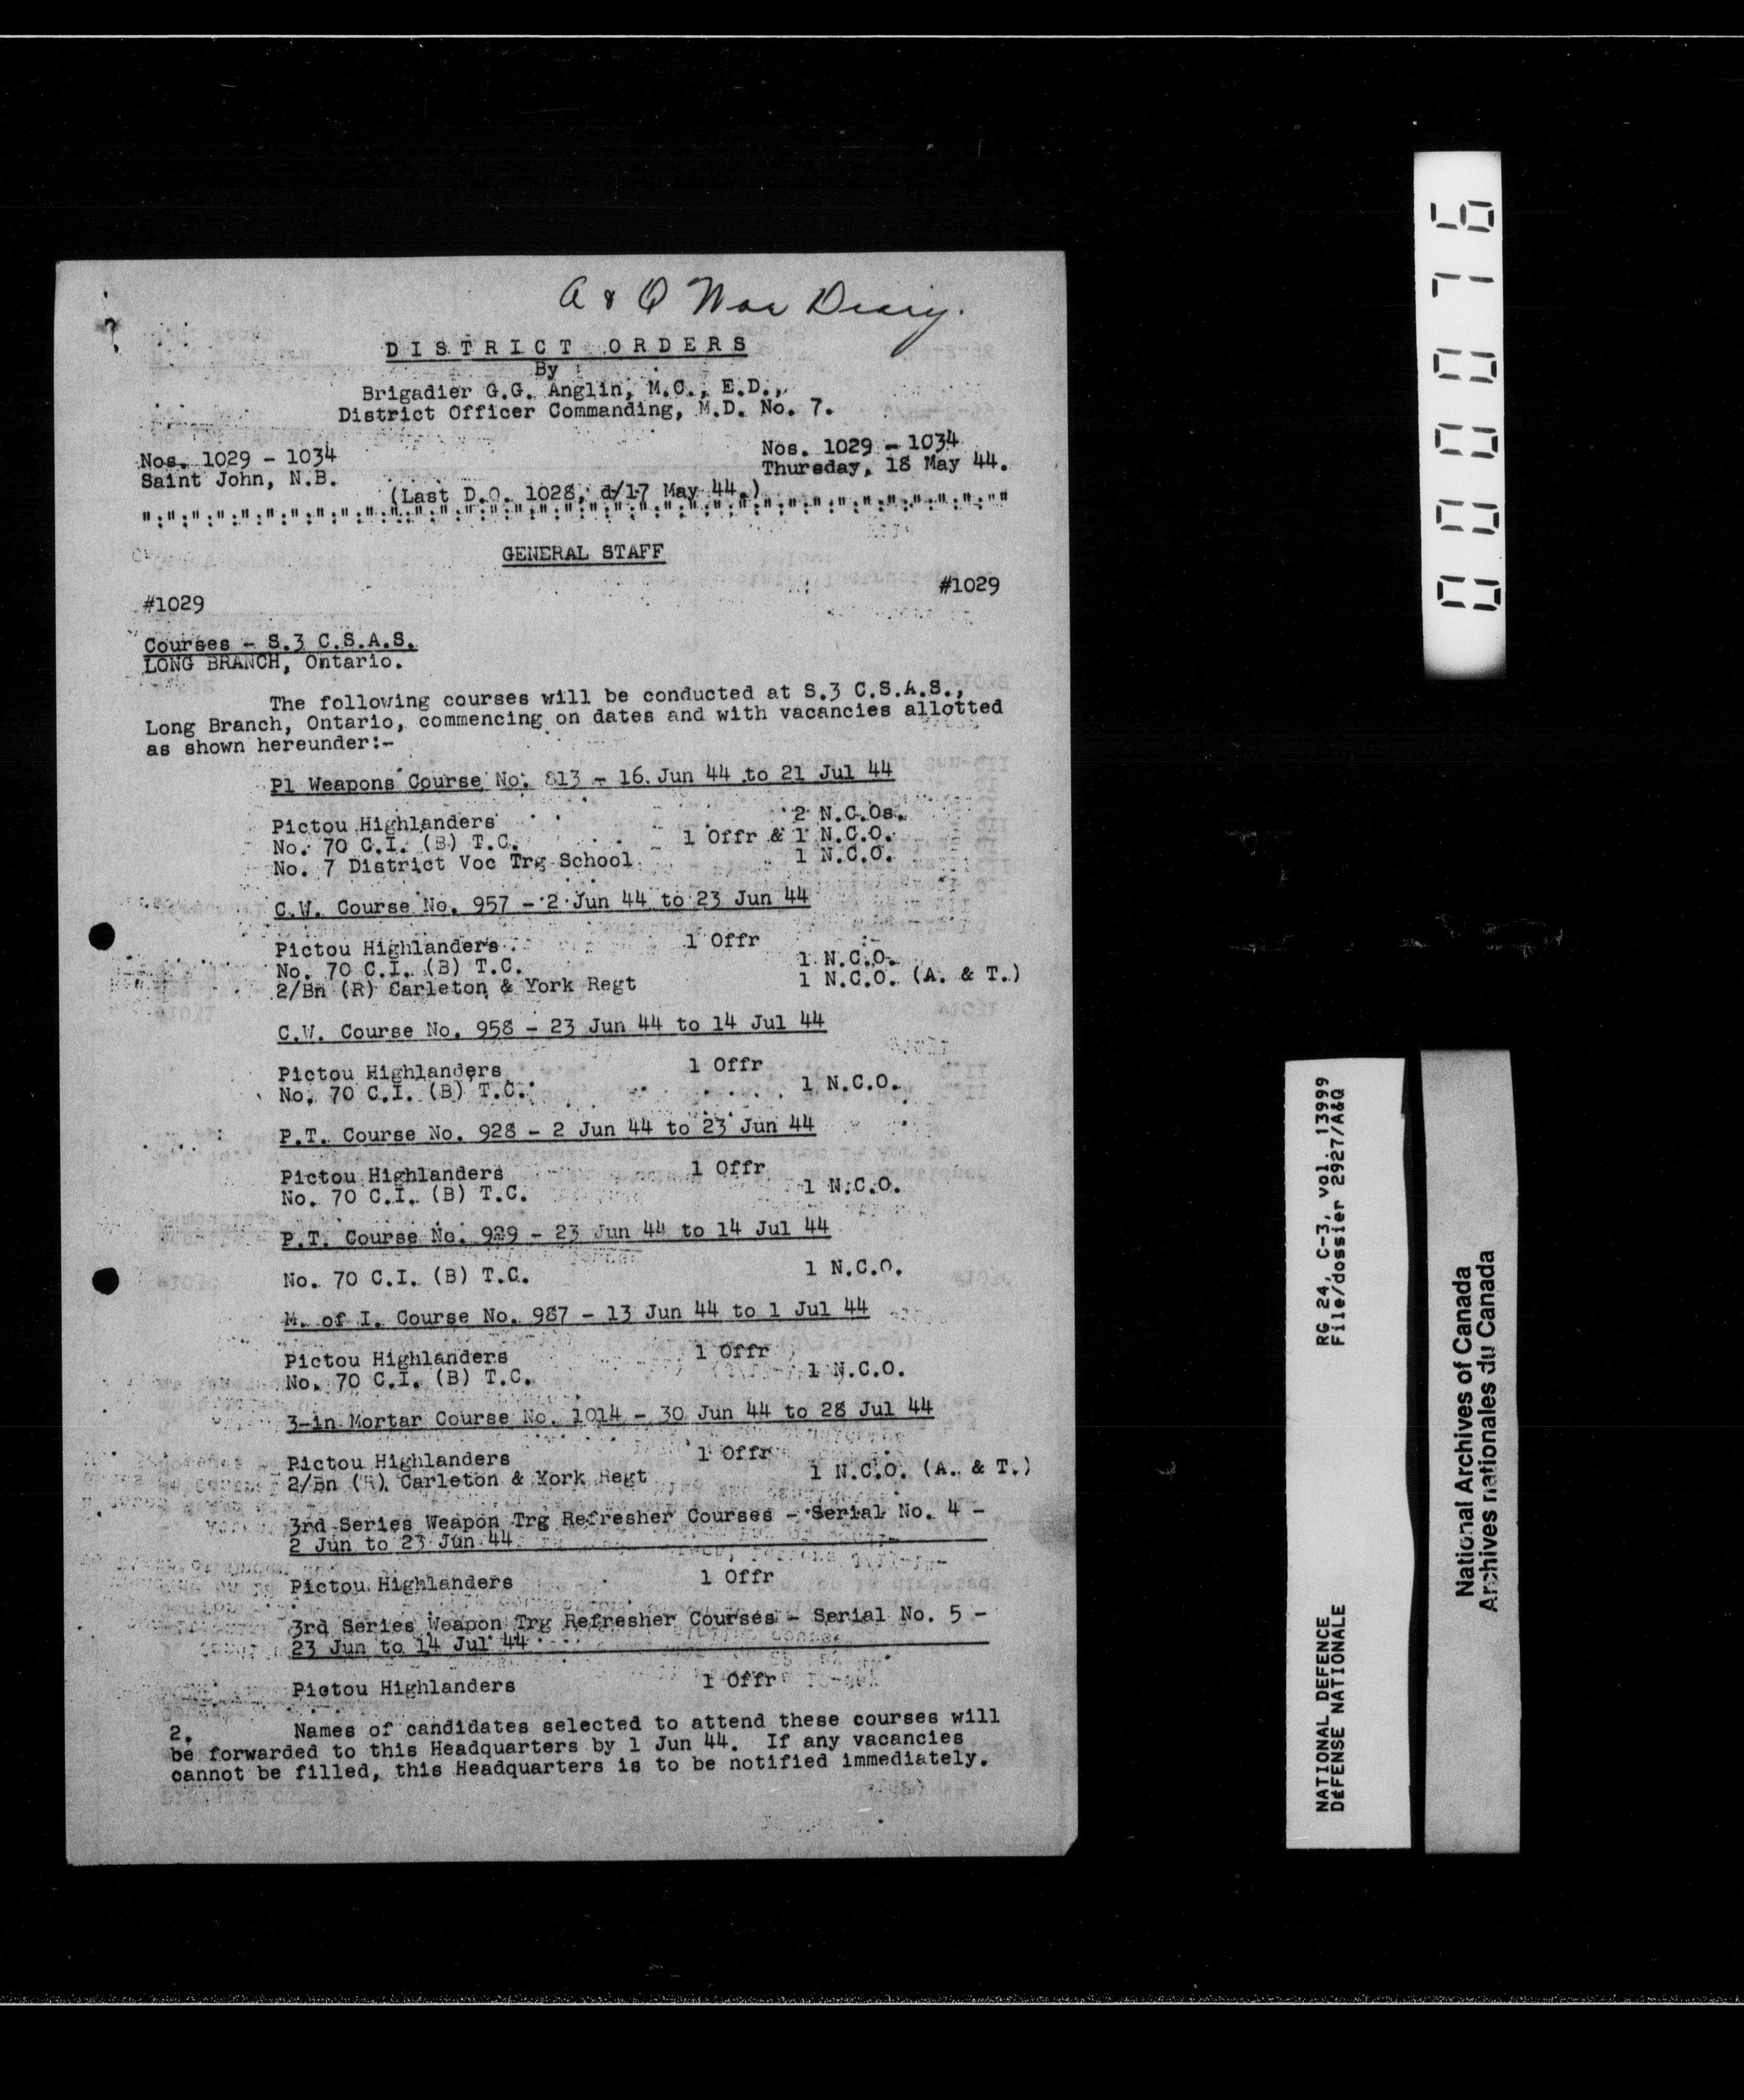 A & Q War Diary.
DISTRICT ORDERS
By
Brigadier G.G. Anglin, M.C., E.D.,
District Officer Commanding, M.D. No. 7.
Nos. 1029 - 1034 Nos. 1029 - 1034
Saint John, N.B. Thursday, 18 May 44.
(Last D.O. 1028, d/17 May 44.)
":":":":":":":":":":":":":":":":":":":":":":":":":":":":":":":":":":""
GENERAL STAFF
#1029 #1029
Courses - S.3 C.S.A.S.
LONG BRANCH, Ontario.
The following courses will be conducted at S.3 C.S.A.S.,
Long Branch, Ontario, commencing on dates and with vacancies allotted
as shown hereunder:-
Pl Weapons Course No. 813 - 16 Jun 44 to 21 Jul 44
Pictou Highlanders - 2 N.C.Os.
No. 70 C.I. (B) T.C. - 1 Offr & 1 N.C.O.
No. 7 District Voc Trg School 1 N.C.O.
C.W. Course No. 957 - 2 Jun 44 to 23 Jun 44
Pictou Highlanders 1 Offr
No. 70 C.I. (B) T.C. 1 N.C.O.
2/Bn (R) Carleton & York Regt 1 N.C.O. (A. & T.)
C.W. Course No. 958 - 23 Jun 44 to 14 Jul 44
Pictou Highlanders 1 Offr
No. 70 C.I. (B) T.C. 1 N.C.O.
P.T. Course No. 928 - 2 Jun 44 to 23 Jun 44
Pictou Highlanders 1 Offr
No. 70 C.I. (B) T.C. 1 N.C.O.
P.T. Course No. 929 - 23 Jun 44 to 14 Jul 44
No. 70 C.I. (B) T.C. 1 N.C.O.
M. of I. Course No. 987 - 13 Jun 44 to 1 Jul 44
Pictou Highlanders 1 Offr
No. 70 C.I. (B) T.C. 1 N.C.O.
3-in Mortar Course No. 1014 - 30 Jun 44 to 28 Jul 44
Pictou Highlanders 1 Offr
2/Bn (R) Carleton & York Regt 1 N.C.O. (A. & T.)
3rd Series Weapon Trg Refresher Courses - Serial No. 4 -
2 Jun to 23 Jun 44
Pictou Highlanders 1 Offr
3rd Series Weapon Trg Refresher Courses - Serial No. 5 -
23 Jun to 14 Jul 44
Pictou Highlanders 1 Offr
2. Names of candidates selected to attend these courses will
be forwarded to this Headquarters by 1 Jun 44. If any vacancies
cannot be filled, this Headquarters is to be notified immediately.
000076
NATIONAL DEFENCE RG 24, C-3, vol. 13999
DEFENSE NATIONALE File/dossier 2927/A&Q
National Archives of Canada
Archives nationales du Canada